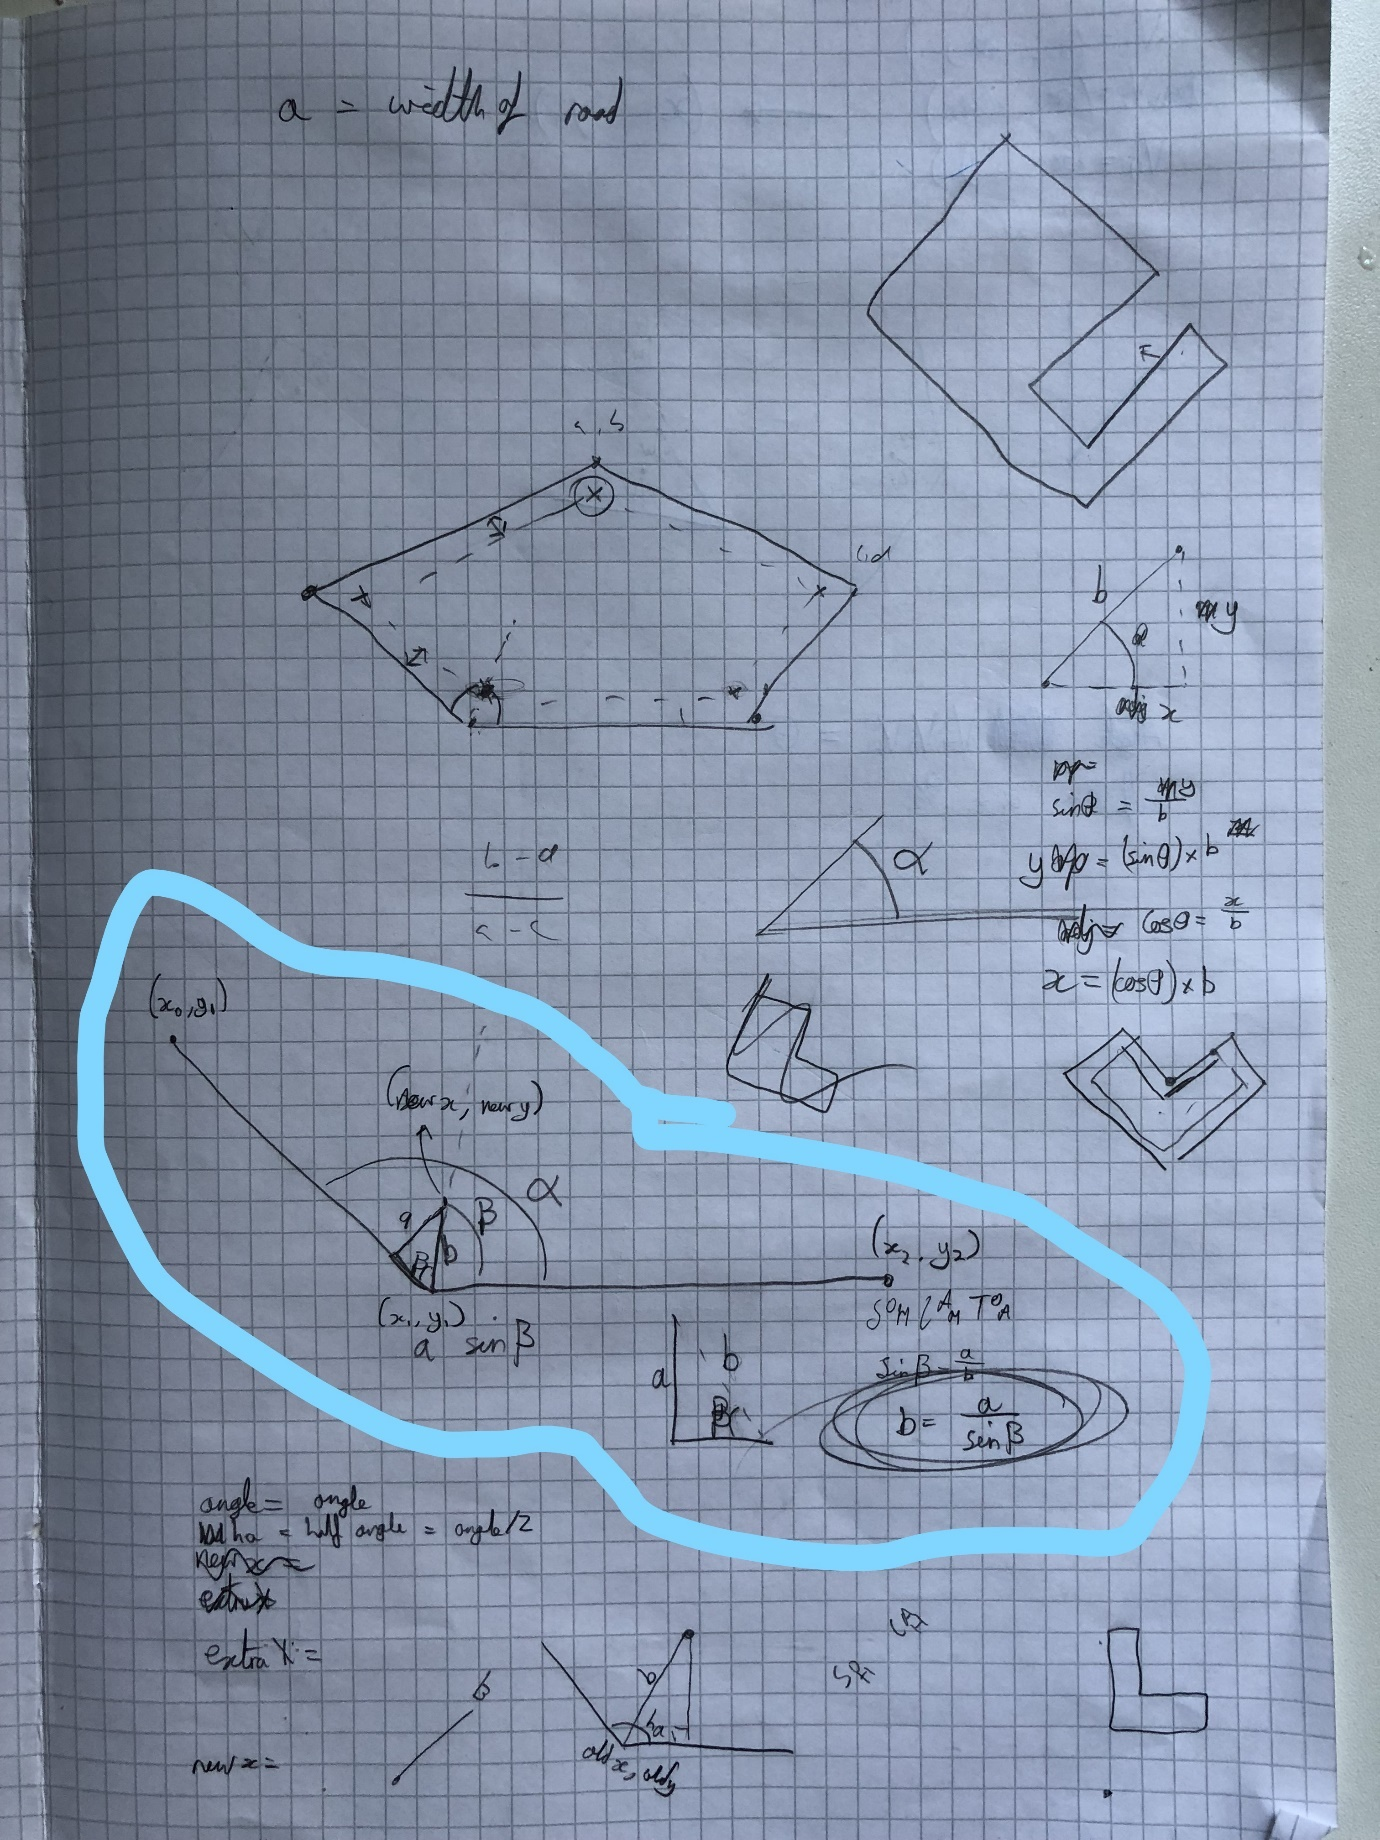 a = width of road
a, b
c, d
b
y
x
sinθ = y/b
α
y = (sinθ) × b
cosθ = x/b
x = (cosθ) × b
b - d
a - c
(x₀, y₁)
(new x, new y)
α
a
β
b
β
(x₂, y₂)
(x₁, y₁)
a sin β
SOH CAH TOA
a
b
β
sin β = a/b
b = a/sin β
angle = angle
ha = half angle = angle/2
extra X =
b
b
ha
old x, old y
new x =